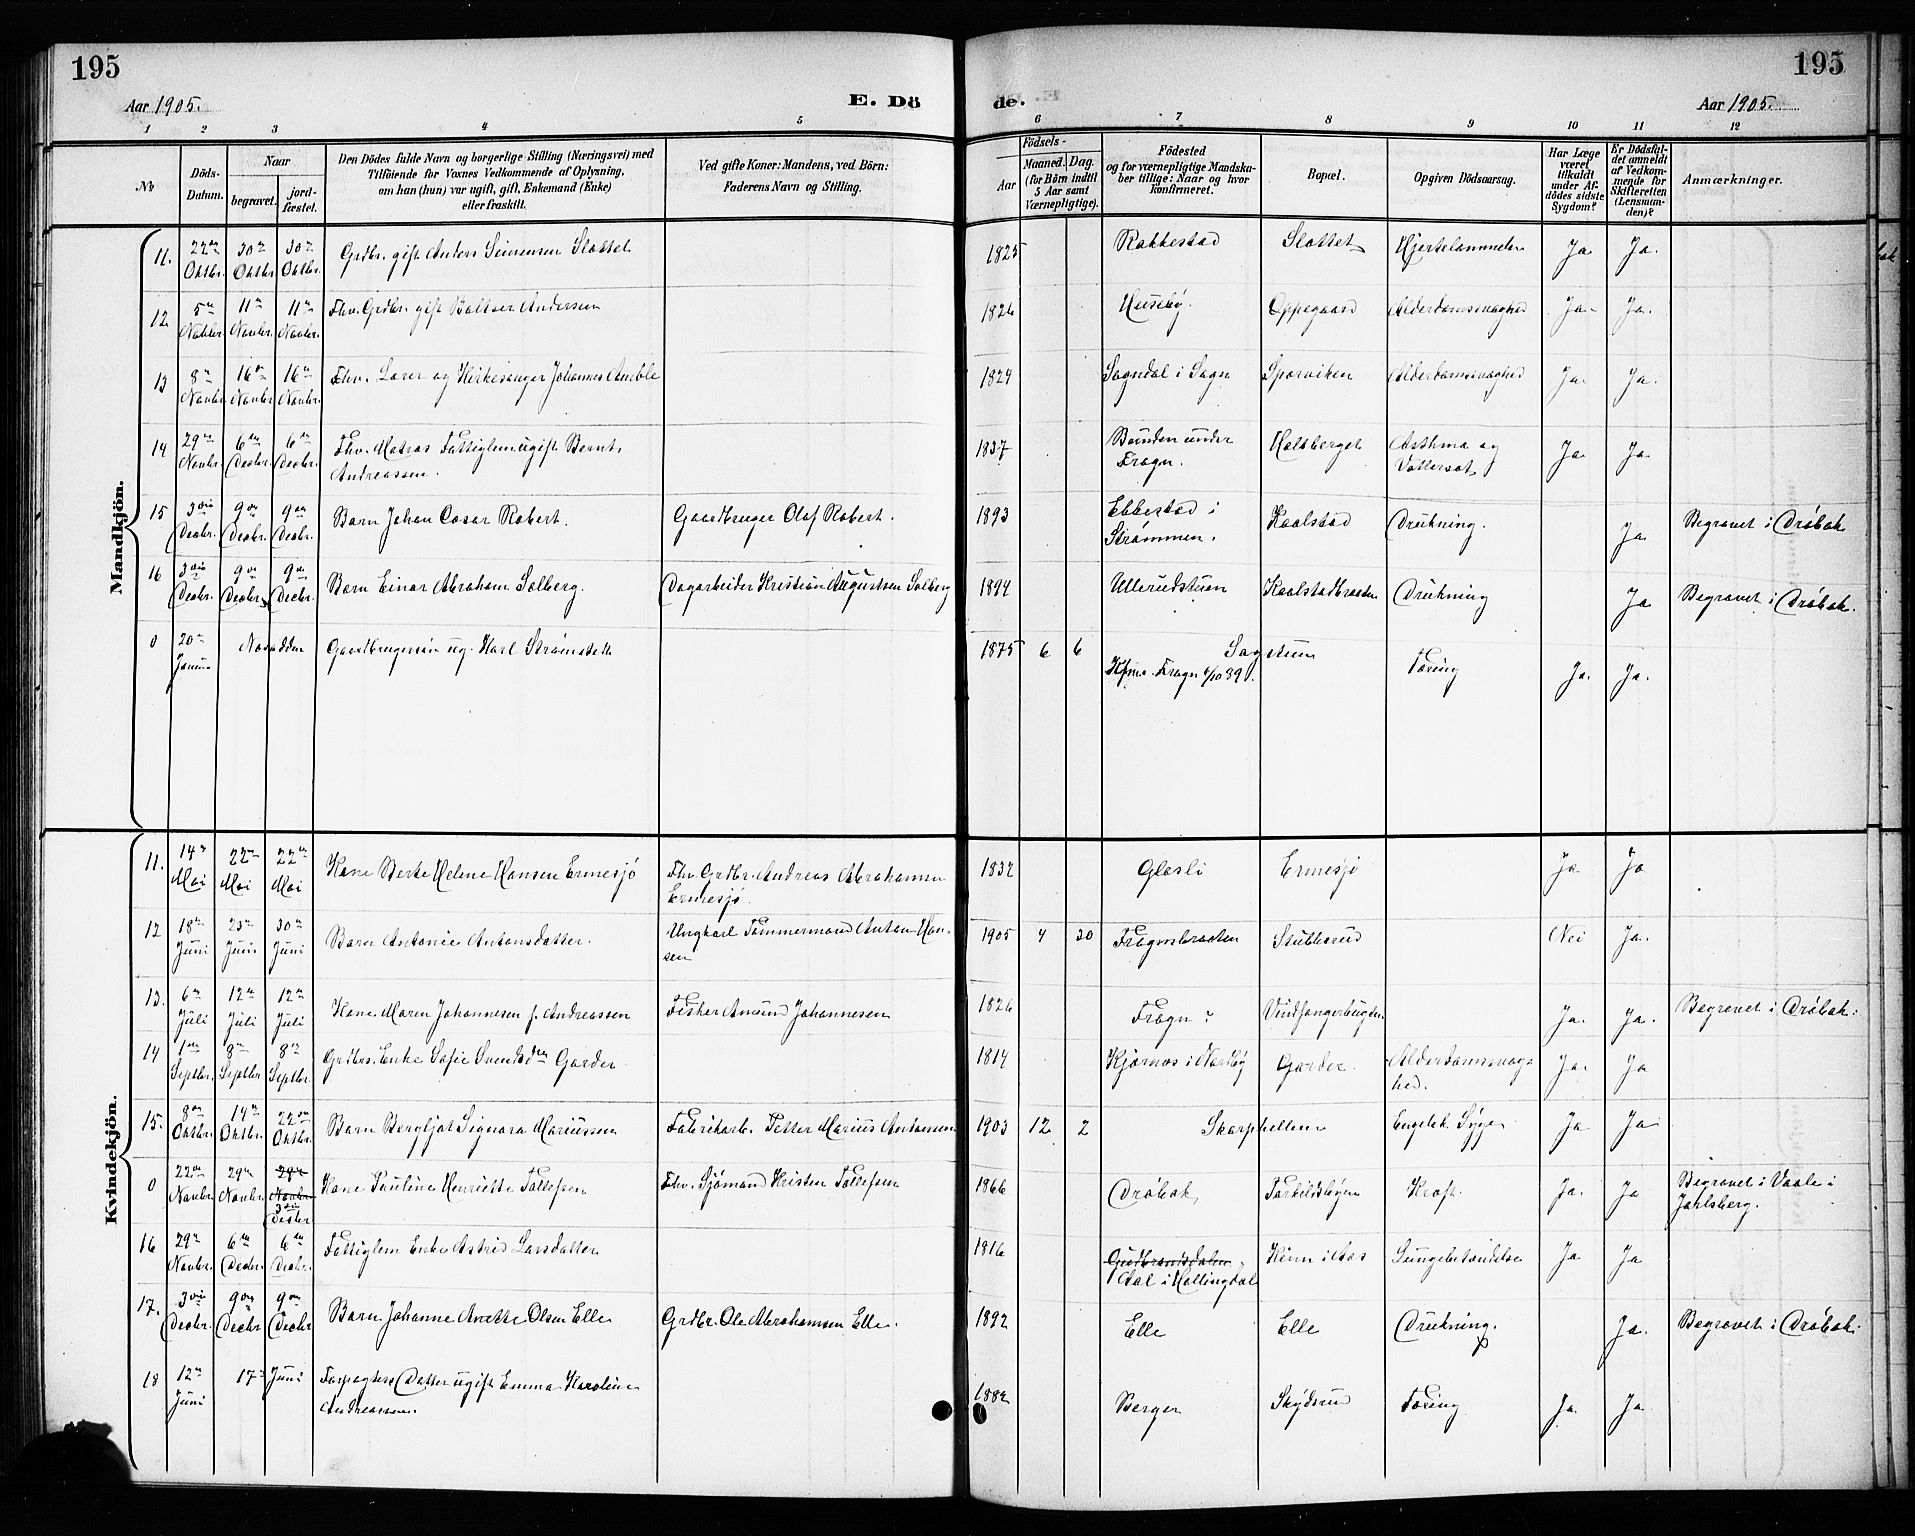 195
195
Aar 1905.
E. Dö
de.
Aar 1905.
1 2 3 4 5 6 7 8 9 10 11 12
No
Döds-
Datum.
Naar
begravet.
jord-
fæstet.
Den Dödes fulde Navn og borgerlige Stilling (Næringsvei) med
Tilföiende for Voxnes Vedkommende af Oplysning,
om han (hun) var ugift, gift, Enkemand (Enke)
eller fraskilt.
Ved gifte Koner: Mandens, ved Börn:
Faderens Navn og Stilling.
Födsels-
Aar
Maaned. Dag.
(for Börn indtil
5 Aar samt
Værnepligtige).
Födested
og for værnepligtige Mandska-
ber tillige: Naar og hvor
konfirmeret.
Bopæl.
Opgiven Dödsaarsag.
Har Læge
været
tilkaldt
under Af-
dödes sidste
Sygdom?
Er Dödsfal-
det anmeldt
af Vedkom-
mende for
Skifteretten
(Lensman-
den)?
Anmærkninger.
Mandkjön.
11. 22de Oktbr. 30te Oktbr. 30te Oktbr. Grdbr. gift Anders Simensen Slottet 1825 Rakkestad Slottet Hjertelammelse Ja Ja.
12. 5te Novbr. 11te Novbr. 11te Novbr. Fhv. Grdbr. gift Baltser Andersen 1826 Huseby. Oppegaard Alderdomssvaghed Ja. Ja.
13 8de Novbr. 16de Novbr. 16de Novbr. Fhv. Lærer og Kirkesanger Johannes Amble 1829 Sogndal i Sogn Sporviken Alderdomssvaghed Ja. Ja.
14 29de Novbr. 6te Decbr. 6te Decbr. Fhv. Matros Fattiglem ugift Bernt
Andreassen. 1837 Bunden under
Frogn. Holtberget Asthma og
Vattersot Ja Ja
15 3die Decbr. 9de Decbr. 9de Decbr. Barn Johan Cæsar Robert. Gaardbruger Olaf Robert. 1893 Ebbestad i
Strømmen. Kaalstad Drukning. Ja Begravet i Drøbak
16 3die Decbr. 9de Decbr. 9de Decbr. Barn Einar Abraham Solberg. Dagarbeider Kristian Augustsen Solberg 1894 Ullerudstuen Kaalstadbraaten Drukning Ja Begravet i Drøbak.
0 20de Januar Gaardbrugersøn ug. Karl 1875 6 6 Sagstuen
Kfm. Frogn 6/10 89. Tæring Ja. Ja.
Kvindekjön.
11. 14de Mai 22de Mai 22de Mai Kone Berte Helene Hansen Ermesjø Fhv. Grdbr. Andreas Abrahamsen
Ermesjø. 1832 Glosli Ermesjø Ja Ja
12 18de Juni 25de Juni 30te Juni Barn Antonie Antonsdatter. Ungkarl Tømmermand Anton Han-
sen 1905 4 20 Frognsbraaten Stubberud Nei Ja.
13. 6te Juli 12te Juli 12te Juli Kone Maren Johannesen f. Andreassen Fisker Amund Johannesen 1826 Frogn? Vindfangerbugten. Ja. Ja. Begravet i Drøbak.
14 1ste Septbr. 8de Septbr 8de Septbr. Grdbrs. Enke Sofie Svendsdtr Garder 1814 Kjærnes i Nordby Garder. Alderdomssvag-
hed. Ja. Ja
15. 8de Oktbr. 14de Oktbr. 22de Oktbr. Barn Bergljot Signora Mariussen Fabrikarb. Petter Marius Antonsen 1903 12 2 Skarphellene Engelsk Syge Ja Ja
0 22de Novbr. 29de Novbr. 29de Novbr. 3die Decbr Kone Pauline Henriette Tollefsen Fhv. Sjømand Kristen Tollefsen 1866 Drøbak Torkildsbyen Kræft. Ja. Ja Begravet i Vaale i
Jarlsberg.
16 29de Novbr. 6te Decbr. 6te Decbr. Fattiglem Enke Astrid Larsdatter 1816 Gudbrandsdalen
Aal i Hallingdal Kinn i Aas Lungebetændelse Ja Ja
17. 3die Decbr. 9de Decbr 9de Decbr Barn Johanne Anette Olsen Elle Grdbr. Ole Abrahamsen Elle. 1892 Elle Elle Drukning. Ja. Begravet i Drøbak.
18 12te Juni 17de Juni Forpagters Datter ugift Emma Karoline
Andreassen. 1882 Berger Skydsrud Tæring Ja. Ja